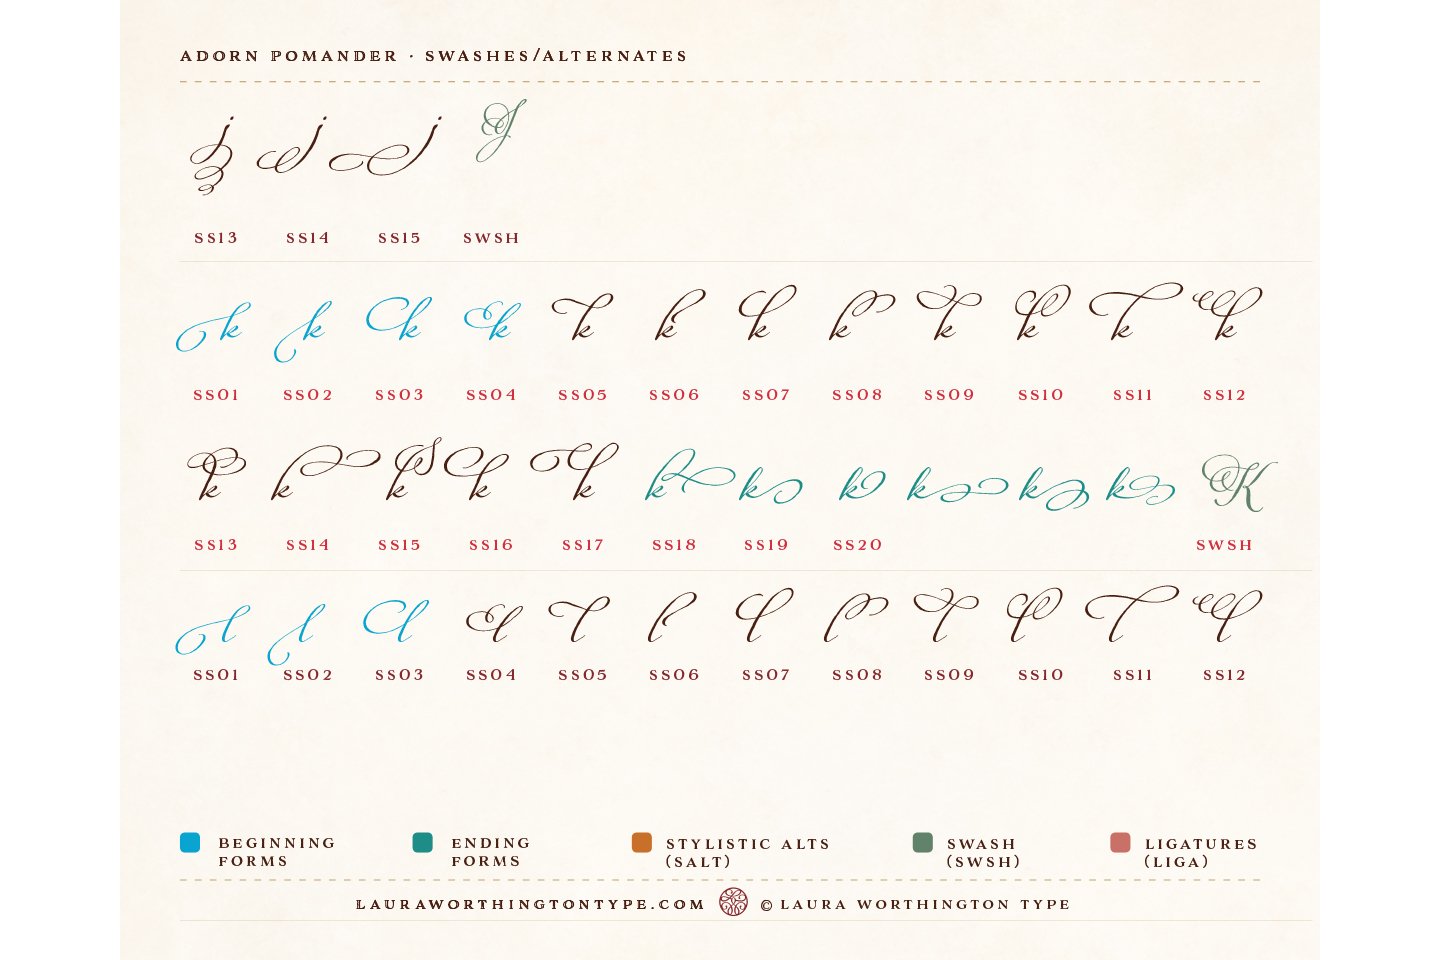 ADORN POMANDER · SWASHES/ALTERNATES
j j j J
SS13 SS14 SS15 SWSH
k k k k k k k k k k k k
SS01 SS02 SS03 SS04 SS05 SS06 SS07 SS08 SS09 SS10 SS11 SS12
k k k k k k k k k k k K
SS13 SS14 SS15 SS16 SS17 SS18 SS19 SS20 SWSH
l l l l l l l l l l l l
SS01 SS02 SS03 SS04 SS05 SS06 SS07 SS08 SS09 SS10 SS11 SS12
BEGINNING FORMS
ENDING FORMS
STYLISTIC ALTS (SALT)
SWASH (SWSH)
LIGATURES (LIGA)
LAURAWORTHINGTONTYPE.COM © LAURA WORTHINGTON TYPE